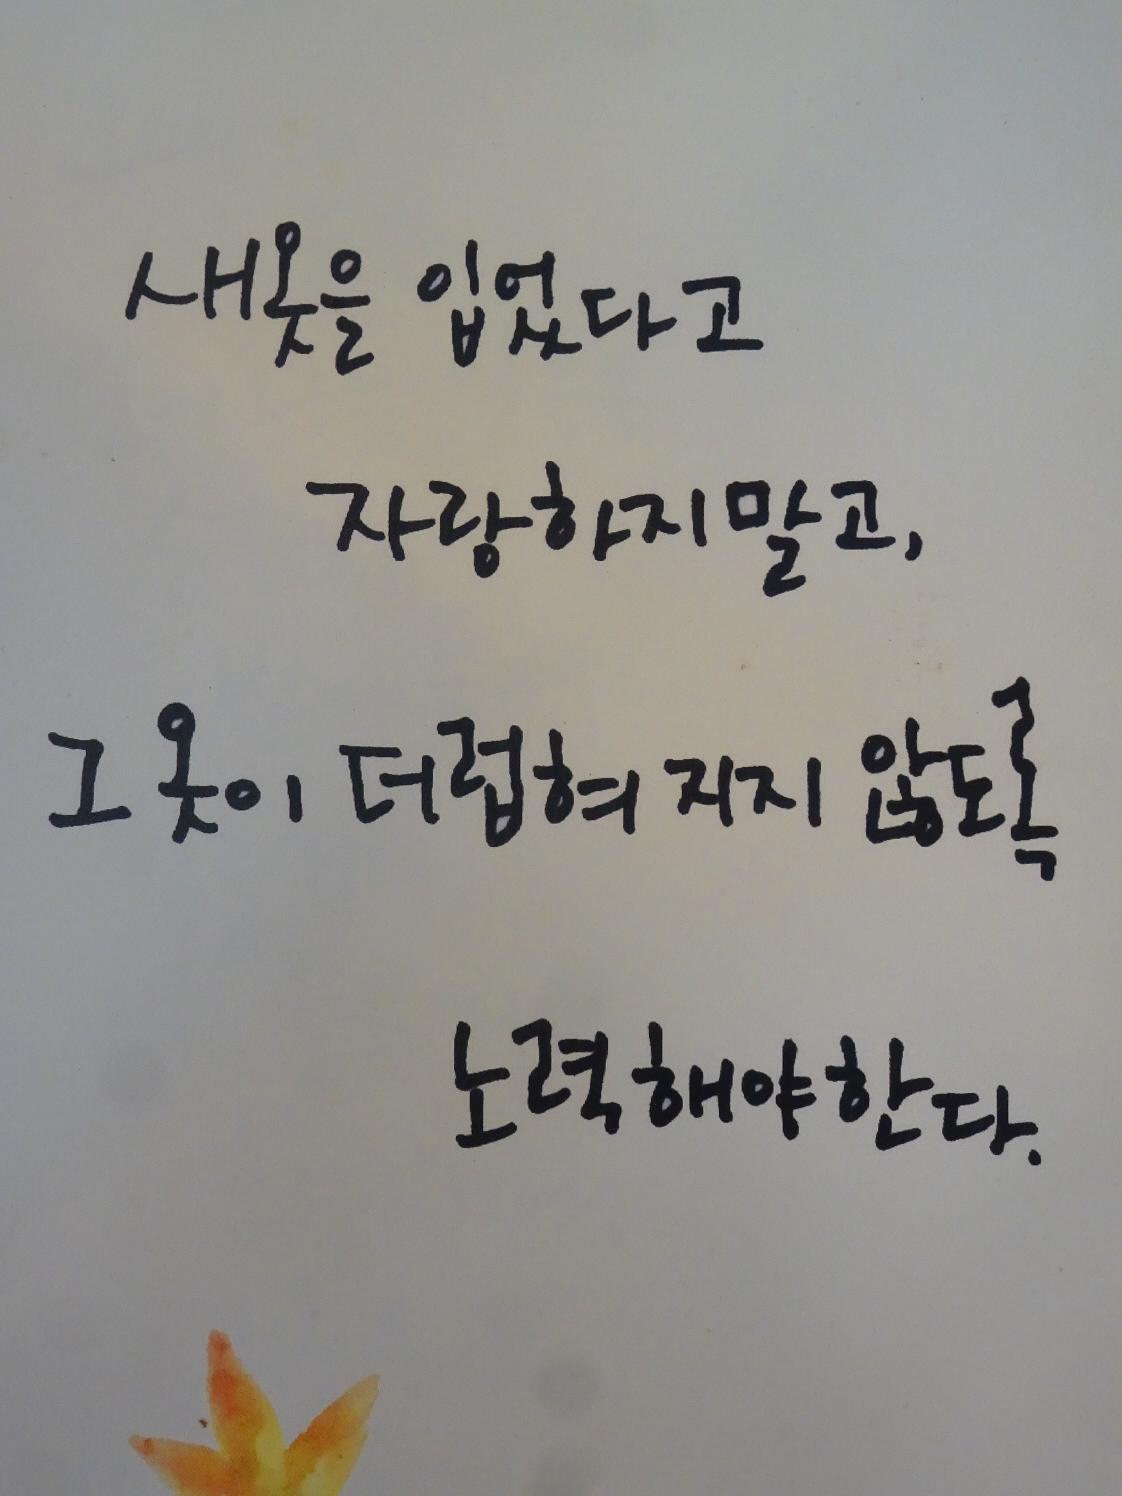 새옷을 입었다고
자랑하지말고,
그 옷이 더럽혀 지지 않도록
노력해야한다.